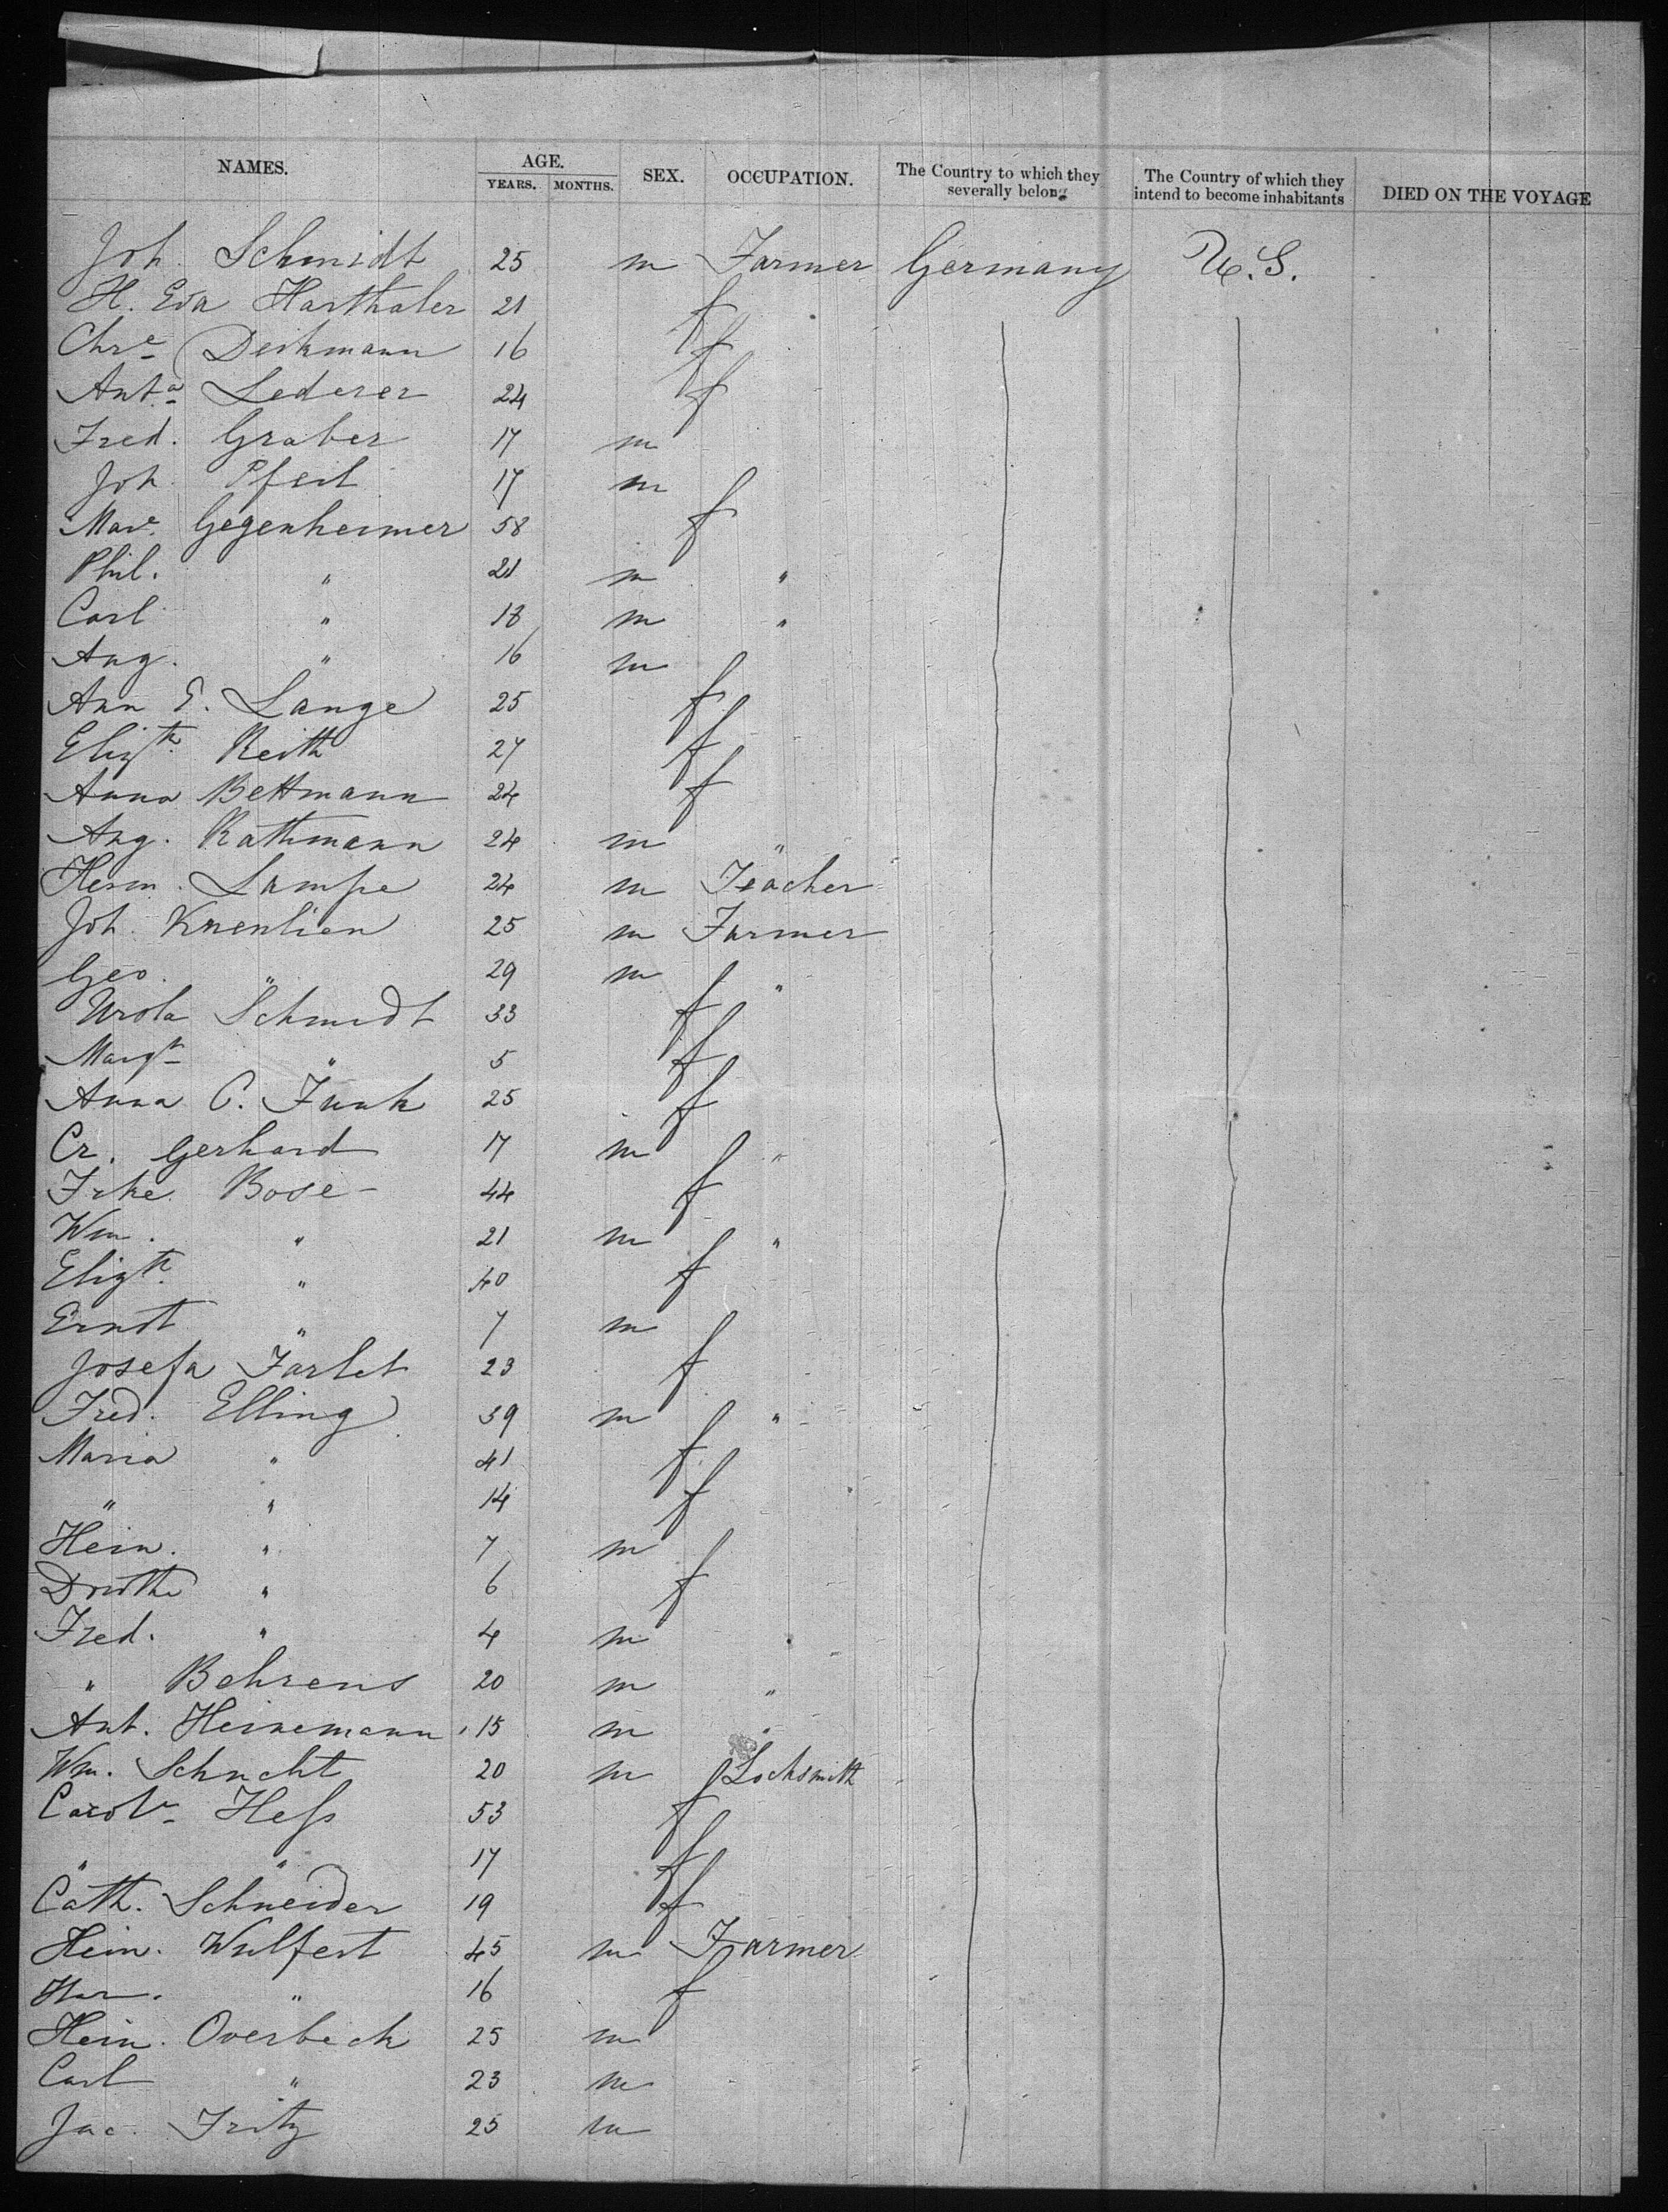 NAMES. AGE. SEX. OCCUPATION. The Country to which they severally belong The Country of which they intend to become inhabitants DIED ON THE VOYAGE
YEARS. MONTHS.
Joh. Schmidt 25 m Farmer Germany U.S.
H. Eva Harthaler 21 f
Chre Deikmann 16 f
Anta Lederer 24 f
Fred. Graber 17 m
Joh. Pfeil 17 m
Mare Gegenheimer 58 f
Phil. " 21 m "
Carl " 18 m "
Aug. " 16 m
Ann E. Lange 25 f
Elizth Reith 27 f
Anna Bettmann 24 f
Aug. Rathmann 24 m "
Herm. Lampe 24 m Teacher
Joh. Kuenlien 25 m Farmer
Geo. " 29 m "
Ursla Schmidt 33 f
Margt " 5 f
Anna C. Funk 25 f
Cr. Gerhard 17 m "
Frke Bose 44 f
Wm. " 21 m "
Elizth " 40 f
Ernst " 7 m
Josefa Farlet 23 f
Fred. Elling 39 m "
Maria " 41 f
" " 14 f
Hein. " 7 m
" 6 f
Fred. " 4 m
" Behrens 20 m "
Ant. Heinemann 15 m "
Wm. Schucht 20 m Locksmith
Carole Hess 53 f
" " 17 f
Cath. Schneider 19 f
Hein. Wulfert 45 m Farmer
" 16 f
Hein. Overbeck 25 m
Carl " 23 m
Jac. Fritz 25 m